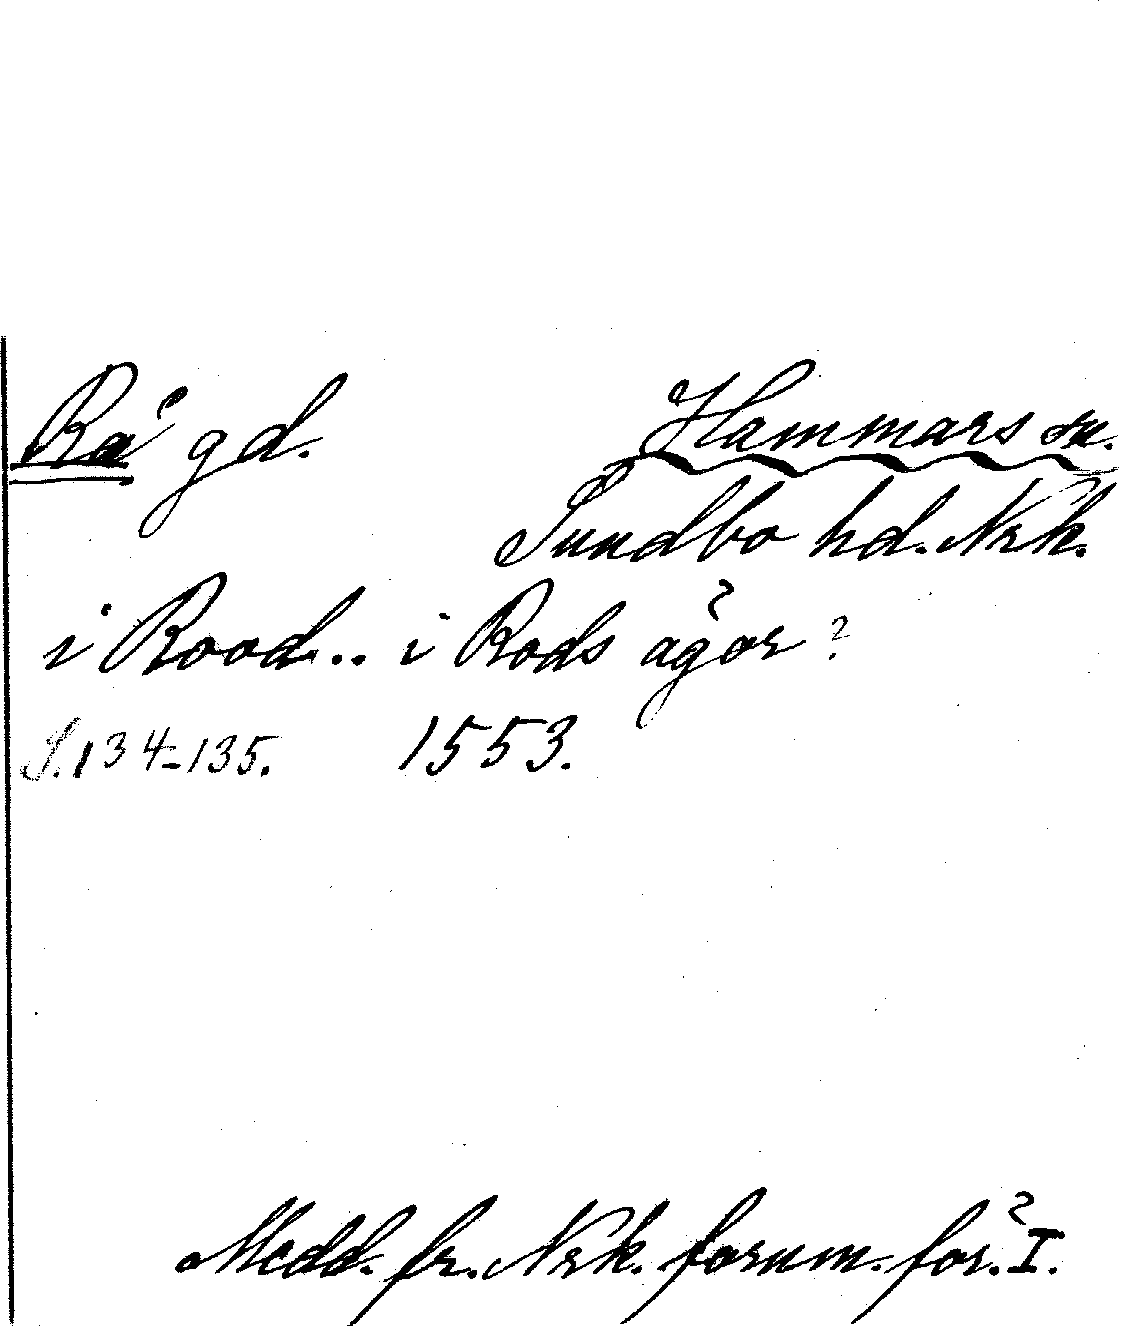 Rå gd.
Hammars sn.
Sundbo hd. Nrk.
i Rood... i Rods ägor?
S. 134-135. 1553.
Medd. fr. Nrk. fornm. för. I.